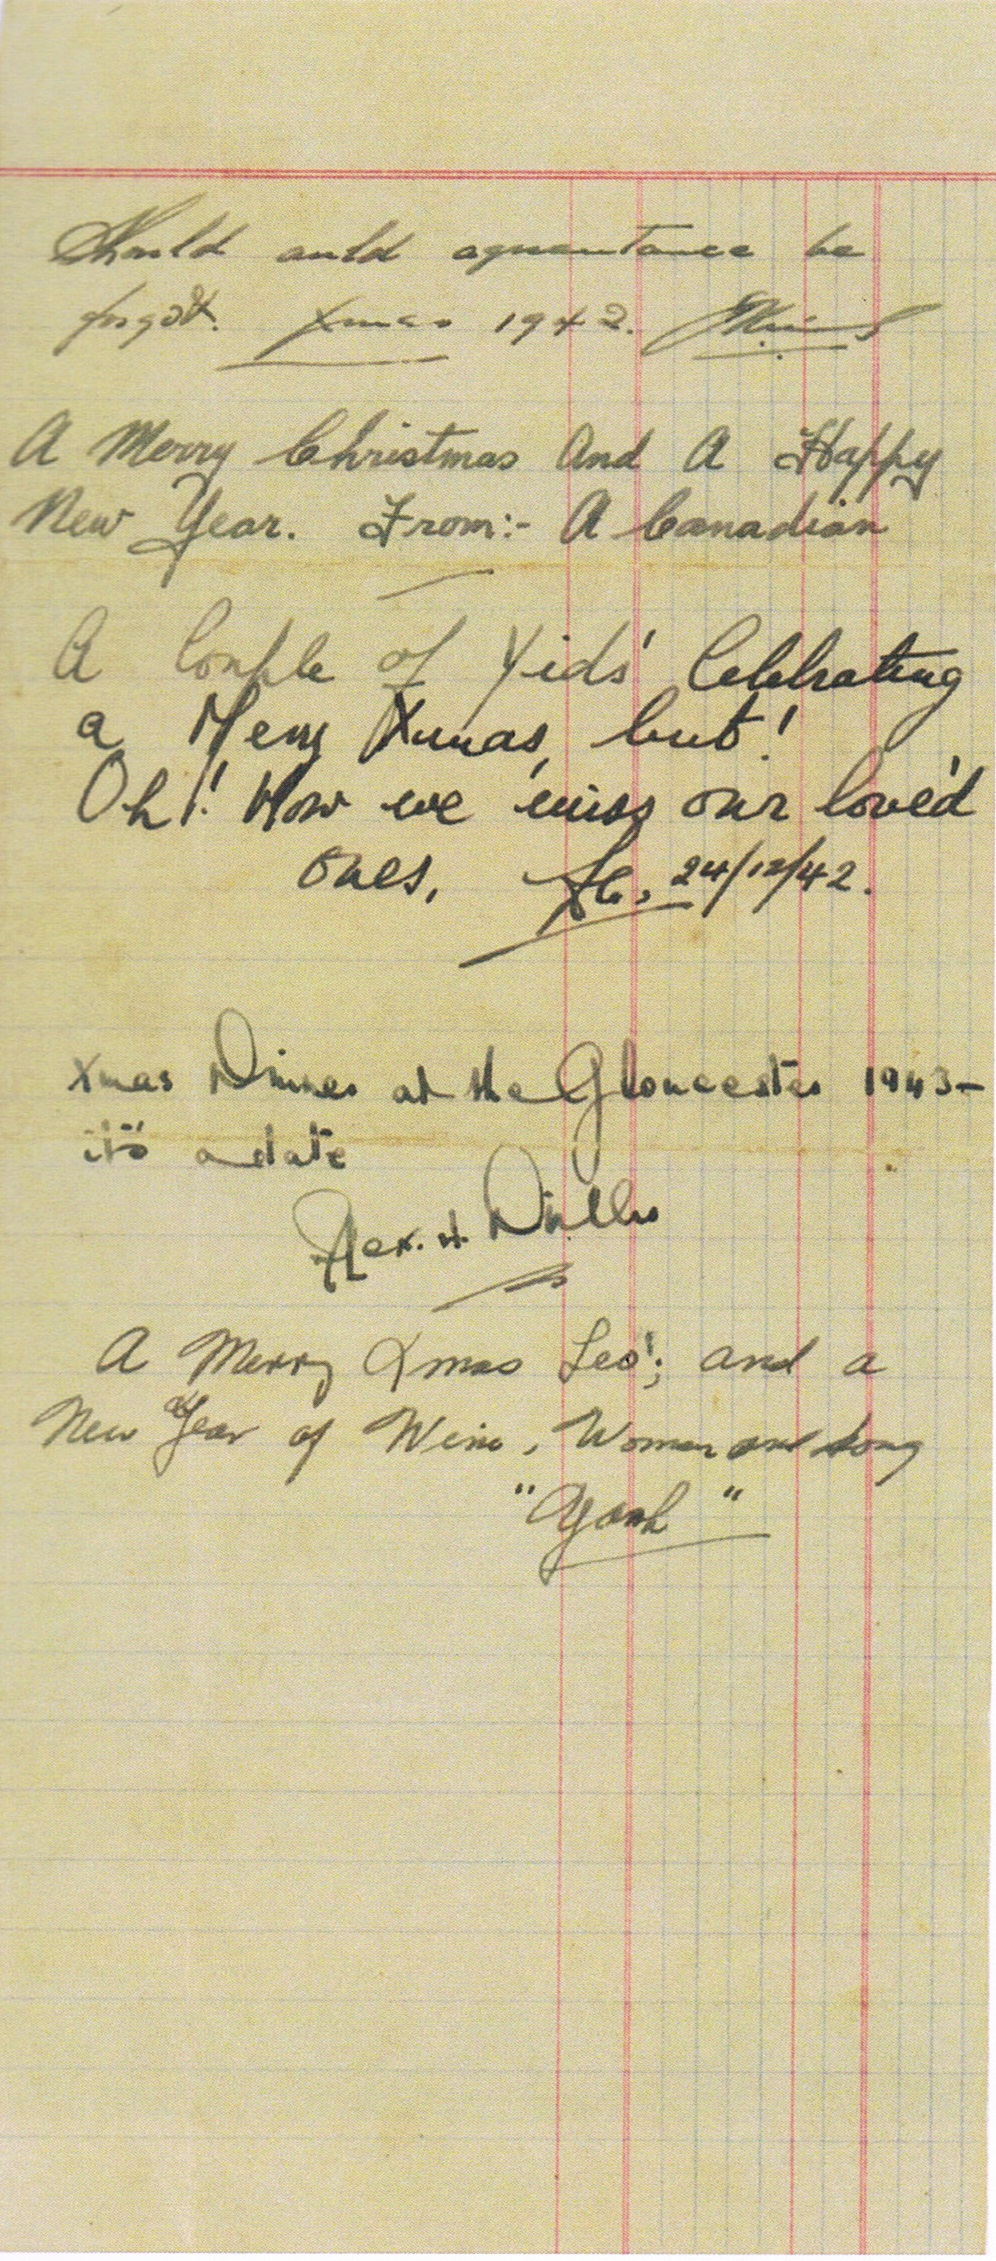 Should auld aquantance be
forgot. Xmas 1942.
A Merry Christmas And A Happy
New Year. From:- A Canadian
A Couple of Yids' Celebrating
a Merry Xmas, but!
Oh! How we miss our loved
ones, 24/12/42.
Xmas Dinner at the Gloucester 1943-
it's a date
Alex. H.
A Merry Xmas Leo!; and a
New Year of Wine, Women and Song